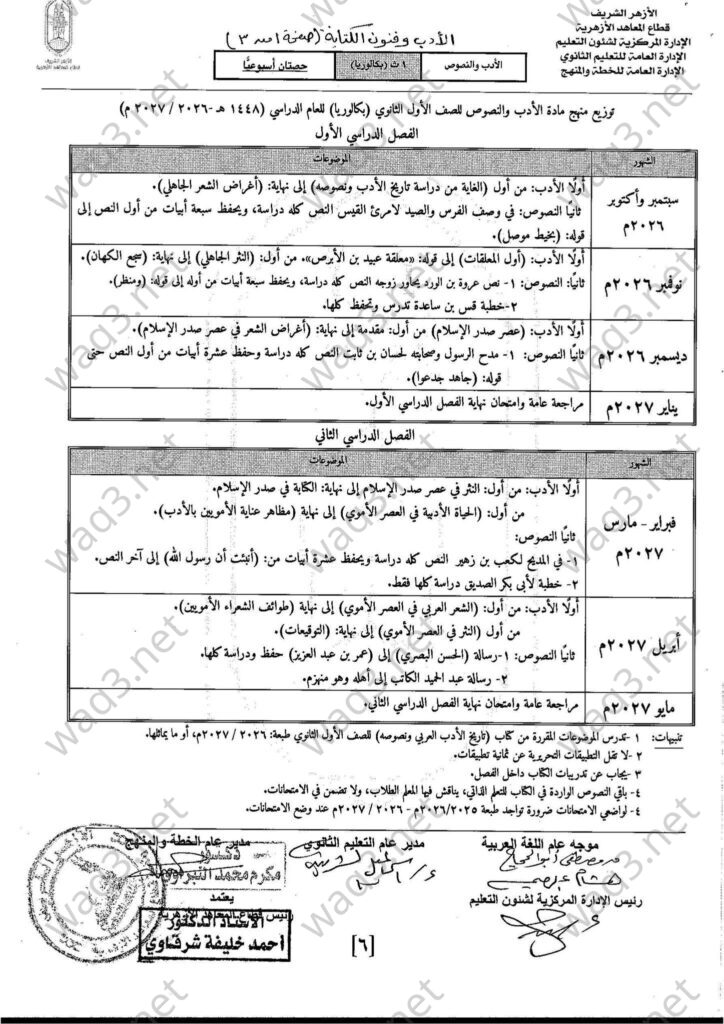 الأزهر الشريف
قطاع المعاهد الأزهرية
الإدارة المركزية لشئون التعليم
الإدارة العامة للتعليم الثانوي
الإدارة العامة للخطة والمنهج
الأزهر الشريف
قطاع المعاهد الأزهرية
الأدب وفنون الكتابة (صفحة ١ من ٣)
الأدب والنصوص
١ ث (بكالوريا)
حصتان أسبوعيًّا
توزيع منهج مادة الأدب والنصوص للصف الأول الثانوي (بكالوريا) للعام الدراسي (١٤٤٨ هـ - ٢٠٢٦ / ٢٠٢٧ م)
الفصل الدراسي الأول
الشهور
الموضوعات
سبتمبر وأكتوبر
٢٠٢٦م
أولًا الأدب: من أول (الغاية من دراسة تاريخ الأدب ونصوصه) إلى نهاية: (أغراض الشعر الجاهلي).
ثانيًا النصوص: في وصف الفرس والصيد لامرئ القيس النص كله دراسة، ويحفظ سبعة أبيات من أول النص إلى
قوله: (بخيط موصل).
نوفمبر ٢٠٢٦م
أولًا الأدب: (أول المعلقات) إلى قوله: «معلقة عبيد بن الأبرص». من أول: (النثر الجاهلي) إلى نهاية: (سجع الكهان).
ثانيًا: النصوص: ١- نص عروة بن الورد يحاور زوجه النص كله دراسة، ويحفظ سبعة أبيات من أوله إلى قوله: (ومنظر).
٢-خطبة قس بن ساعدة تدرس وتحفظ كلها.
ديسمبر ٢٠٢٦م
أولًا الأدب: (عصر صدر الإسلام) من أول: مقدمة إلى نهاية: (أغراض الشعر في عصر صدر الإسلام).
ثانيًا النصوص: ١- مدح الرسول وصحابته لحسان بن ثابت النص كله دراسة وحفظ عشرة أبيات من أول النص حتى
قوله: (جاهد جدعوا).
يناير ٢٠٢٧م
مراجعة عامة وامتحان نهاية الفصل الدراسي الأول.
الفصل الدراسي الثاني
الشهور
الموضوعات
فبراير - مارس
٢٠٢٧م
أولًا الأدب: من أول: النثر في عصر صدر الإسلام إلى نهاية: الكتابة في صدر الإسلام.
من أول: (الحياة الأدبية في العصر الأموي) إلى نهاية (مظاهر عناية الأمويين بالأدب).
ثانيًا النصوص:
١- في المديح لكعب بن زهير النص كله دراسة ويحفظ عشرة أبيات من: (أنبئت أن رسول الله) إلى آخر النص.
٢- خطبة لأبي بكر الصديق دراسة كلها فقط.
أبريل ٢٠٢٧م
أولًا الأدب: من أول: (الشعر العربي في العصر الأموي) إلى نهاية (طوائف الشعراء الأمويين).
من أول (النثر في العصر الأموي) إلى نهاية: (التوقيعات).
ثانيًا النصوص: ١-رسالة (الحسن البصري) إلى (عمر بن عبد العزيز) حفظ ودراسة كلها.
٢- رسالة عبد الحميد الكاتب إلى أهله وهو منهزم.
مايو ٢٠٢٧م
مراجعة عامة وامتحان نهاية الفصل الدراسي الثاني.
تنبيهات: ١ -تدرس الموضوعات المقررة من كتاب (تاريخ الأدب العربي ونصوصه) للصف الأول الثانوي طبعة: ٢٠٢٦ / ٢٠٢٧م، أو ما يماثلها.
٢ -لا تقل التطبيقات التحريرية عن ثمانية تطبيقات.
٣ -يجاب عن تدريبات الكتاب داخل الفصل.
٤- باقي النصوص الواردة في الكتاب للتعلم الذاتي، يناقش فيها المعلم الطلاب، ولا تضمن في الامتحانات.
٤- لواضعي الامتحانات ضرورة تواجد طبعة ٢٠٢٦/٢٠٢٥م - ٢٠٢٦ / ٢٠٢٧م عند وضع الامتحانات.
موجه عام اللغة العربية
مدير عام التعليم الثانوي
مدير عام الخطة والمنهج
مكرم محمد
رئيس الإدارة المركزية لشئون التعليم
يعتمد
رئيس قطاع المعاهد الأزهرية
الأستاذ الدكتور
أحمد خليفة شرقاوي
[٦]
waq3.net